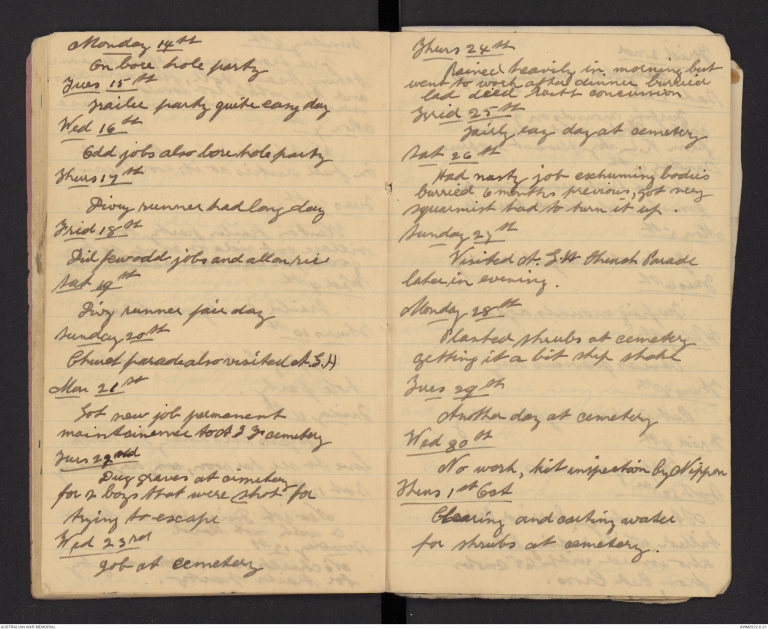 Monday 14th
On bore hole party
Tues 15th
Trailer party quite easy day
Wed 16th
Odd jobs also bore hole party
Thurs 17th
Divvy runner had long day
Frid 18th
Did few odd jobs and all on rice
Sat 19th
Divy runner fair day
Sunday 20th
Church parade also visited A.G.H
Mon 21st
Got new job permanent
maintainence to A I F cemetery
Tues 22nd
Dug graves at cimetery
for 2 boys that were shot for
trying to escape
Wed 23rd
Job at cemetery
Thurs 24th
Rained heavily in morning but
went to work after dinner burried
lad died concussion
Frid 25th
Fairly easy day at cemetery
Sat 26th
Had nasty job exhuming bodies
burried 6 months previous, got very
squarmist had to turn it up.
Sunday 27th
Visited A.G.H Church Parade
later in evening.
Monday 28th
Planted shrubs at cemetery
getting it a bit ship shape
Tues 29th
Another day at cemetery
Wed 30th
No work, kit inspection by Nippon
Thurs 1st Oct
Clearing and carting water
for shrubs at cemetery.
AUSTRALIAN WAR MEMORIAL